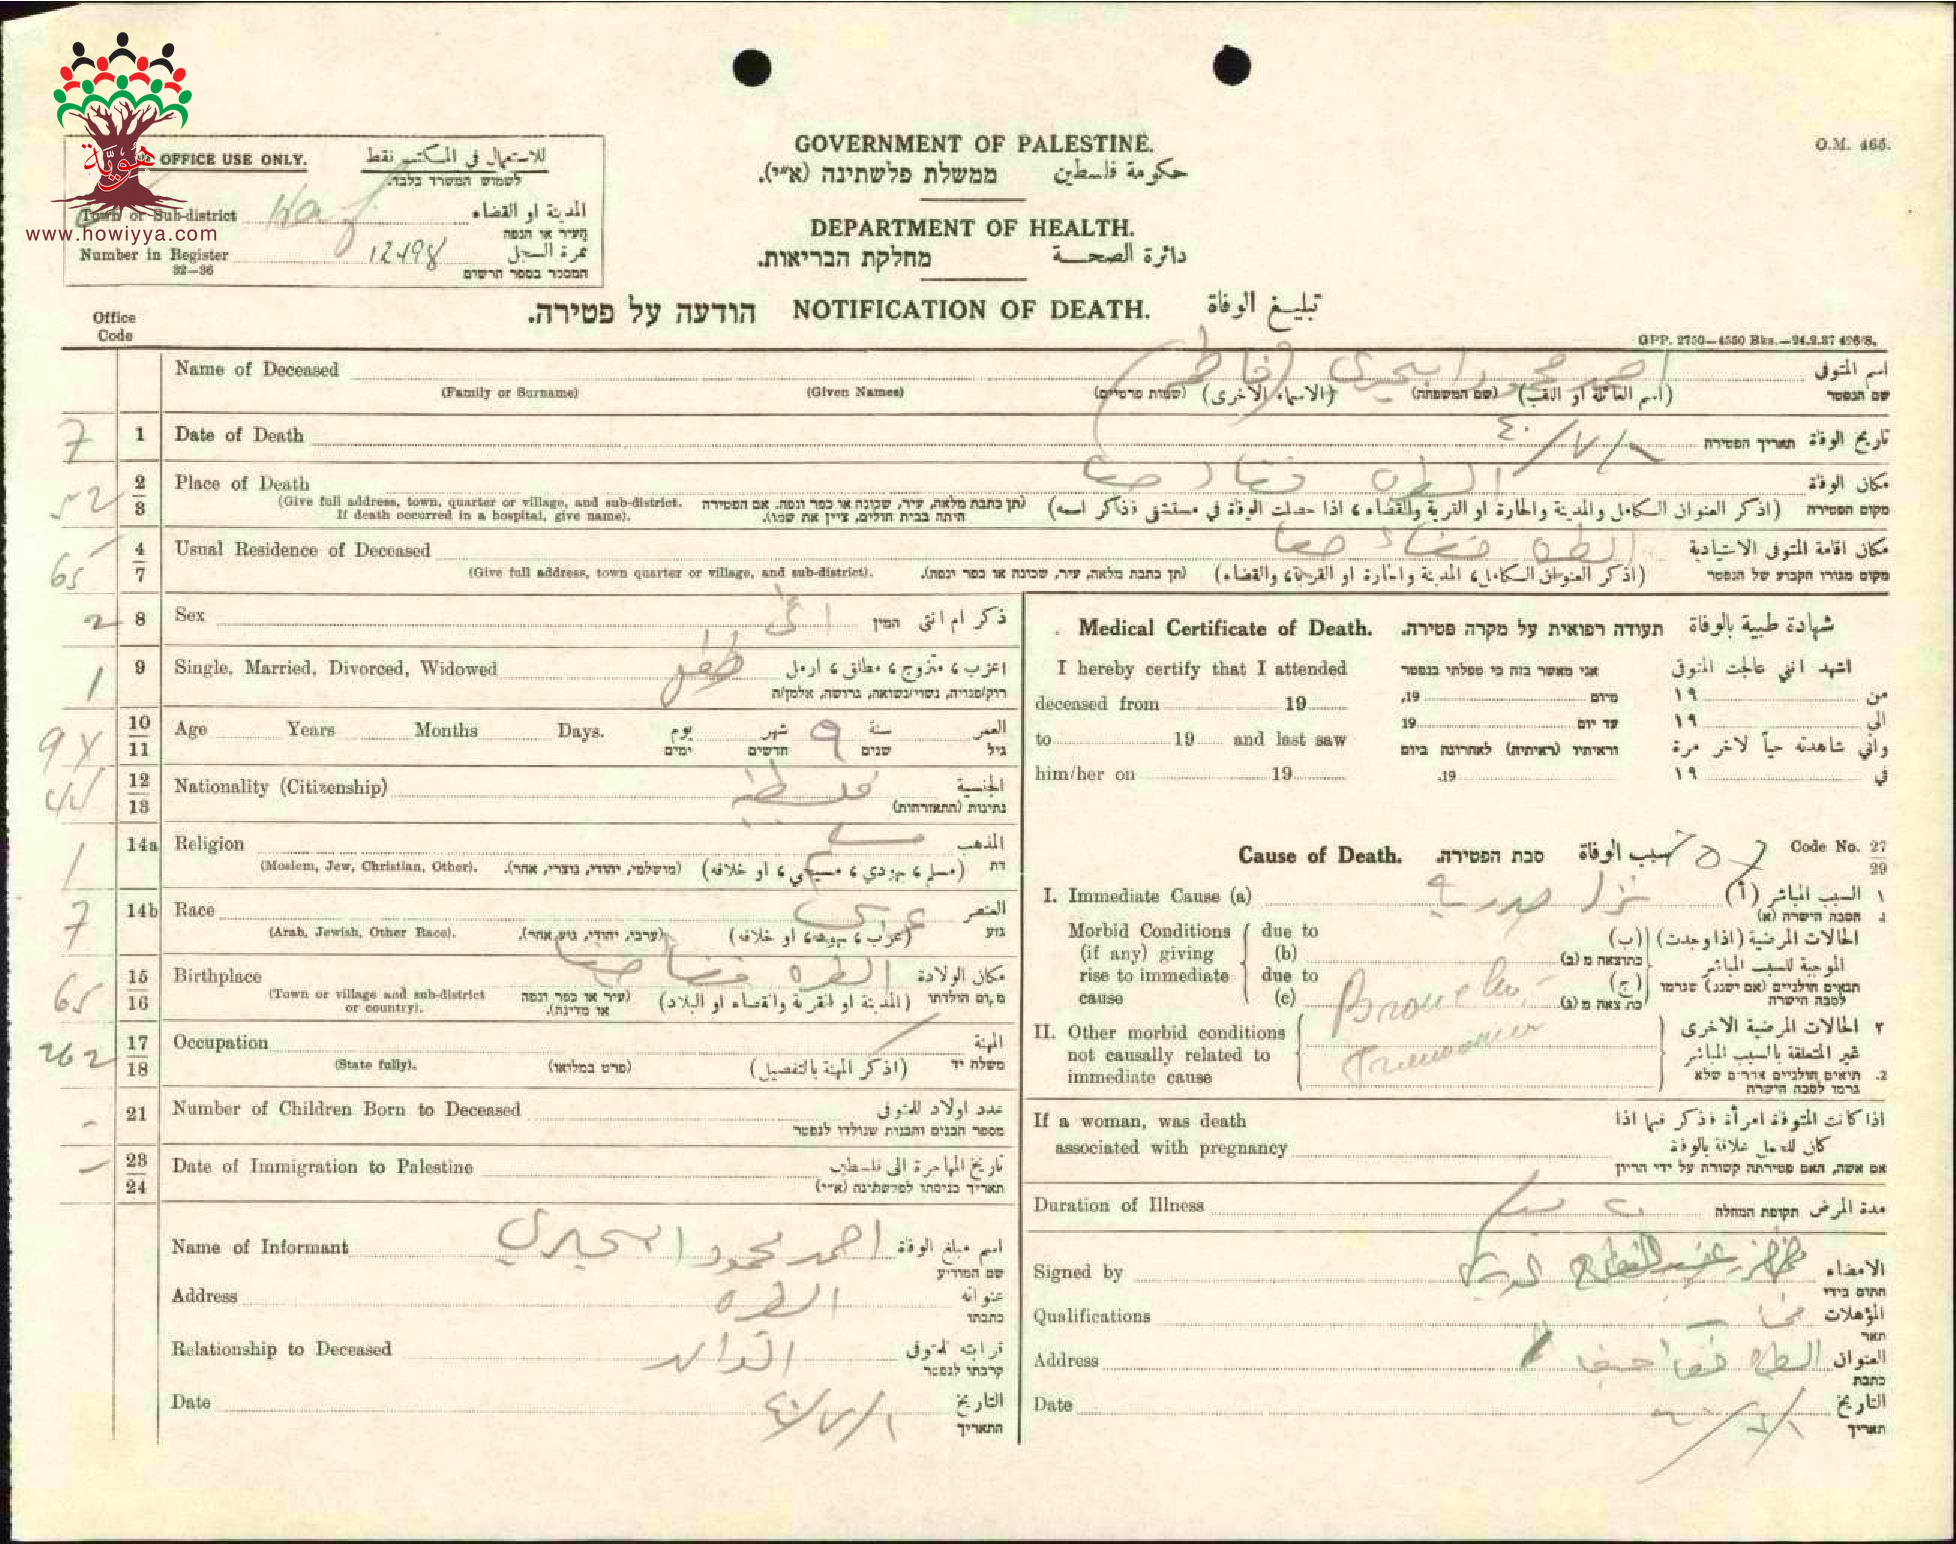 هويّة
www.howiyya.com
OFFICE USE ONLY. للاستعمال في المكتب فقط
לשמוש המשרד בלבד.
Town or Sub-district المدينة او القضاء
העיר או הנפה
Number in Register 12498 نمرة السجل
32—36 המספר בספר הרשום
GOVERNMENT OF PALESTINE.
ממשלת פלשתינה (א״י). حكومة فلسطين
DEPARTMENT OF HEALTH.
מחלקת הבריאות. دائرة الصحة
O.M. 465.
הודעה על פטירה. NOTIFICATION OF DEATH. تبليغ الوفاة
Office
Code
GPP. 2750—4550 Bks.—24.2.37 426/S.
Name of Deceased احمد محمود (فاطمة) اسم المتوفى
(Family or Surname) (Given Names) (שמות פרטיים) (الاسماء الاخرى) (שם המשפחה) (اسم العائلة او اللقب) שם הנפטר
7 1 Date of Death ٤٠/٧/١ תאריך הפטירה تاريخ الوفاة
52 2/3 Place of Death الطيره قضاء حيفا مكان الوفاة
(Give full address, town, quarter or village, and sub-district. (תן כתבת מלאה, עיר, שכונה או כפר ונפה. אם הפטירה (اذكر العنوان الكامل والمدينة والحارة او القرية والقضاء، اذا حصلت الوفاة في مستشفى فذكر اسمه) מקום הפטירה
If death occurred in a hospital, give name). היתה בבית חולים, ציין את שמו).
65 4/7 Usual Residence of Deceased الطيره قضاء حيفا مكان اقامة المتوفى الاعتيادية
(Give full address, town quarter or village, and sub-district). (תן כתבת מלאה, עיר, שכונה או כפר ונפה). (اذكر العنوان الكامل، المدينة والحارة او القرية، والقضاء) מקום מגורו הקבוע של הנפטר
2 8 Sex انثى המין ذكر ام انثى
1 9 Single, Married, Divorced, Widowed طفل اعزب، متزوج، مطلق، ارمل
רווק/פנויה, נשוי/נשואה, גרושה, אלמן/ה
9 10/11 Age Years Months Days. يوم شهر ٩ سنة العمر
ימים חדשים שנים גיל
12/13 Nationality (Citizenship) فلسطينية الجنسية
נתינות (התאזרחות)
1 14a Religion مسلم المذهب
(Moslem, Jew, Christian, Other). (מוסלמי, יהודי, נוצרי, אחר). (مسلم، يهودي، مسيحي، او خلافه) דת
7 14b Race عربي العنصر
(Arab, Jewish, Other Race). (ערבי, יהודי, גזע אחר). (عرب، يهود، او خلافه) גזע
65 15/16 Birthplace الطيره قضا حيفا مكان الولادة
(Town or village and sub-district or country). (עיר או כפר ונפה או מדינה). (المدينة او القرية والقضاء او البلاد) מקום הולדתו
262 17/18 Occupation المهنة
(State fully). (פרט במלואו) (اذكر المهنة بالتفصيل) משלח יד
- 21 Number of Children Born to Deceased عدد اولاد للمتوفى
מספר הבנים והבנות שנולדו לנפטר
- 23/24 Date of Immigration to Palestine تاريخ المهاجرة الى فلسطين
תאריך כניסתו לפלשתינה (א״י)
Name of Informant احمد محمود اسم مبلغ الوفاة
שם המודיע
Address الطيره عنوانه
כתבתו
Relationship to Deceased الوالد قرابته للمتوفى
קרבתו לנפטר
Date ٤٠/٧/١ التاريخ
התאריך
Medical Certificate of Death. תעודה רפואית על מקרה פטירה. شهادة طبية بالوفاة
I hereby certify that I attended אני מאשר בזה כי טפלתי בנפטר اشهد انني عالجت المتوفى
deceased from 19 מיום 19, من ١٩
to 19 and last saw עד יום 19 الى ١٩
וראיתיו (ראיתיה) לאחרונה ביום واني شاهدته حياً لاخر مرة
him/her on 19 19. في ١٩
Cause of Death. סבת הפטירה. سبب الوفاة Code No. 27/29
I. Immediate Cause (a) نزلة صدرية (أ) السبب المباشر ١
הסבה הישרה (א) .1
Morbid Conditions (if any) giving rise to immediate cause
due to (b)
due to (c)
(ب) الحالات المرضية (اذا وجدت)
כתוצאה מ (ב) الموجبة للسبب المباشر
(ج) תנאים חולניים (אם ישנם) שגרמו
לסבה הישרה
Broncho-
II. Other morbid conditions not causally related to immediate cause
٢ الحالات المرضية الاخرى
غير المتعلقة بالسبب المباشر
2. תנאים חולניים אחרים שלא
גרמו לסבה הישרה
If a woman, was death associated with pregnancy
اذا كانت المتوفة امرأة فذكر فيما اذا
كان للحمل علاقة بالوفاة
אם אשה, האם פטירתה קשורה על ידי הריון
Duration of Illness תקופת המחלה مدة المرض
Signed by الامضاء
חתום בידי
Qualifications المؤهلات
תאר
Address الطيره قضا حيفا العنوان
כתבת
Date التاريخ
תאריך